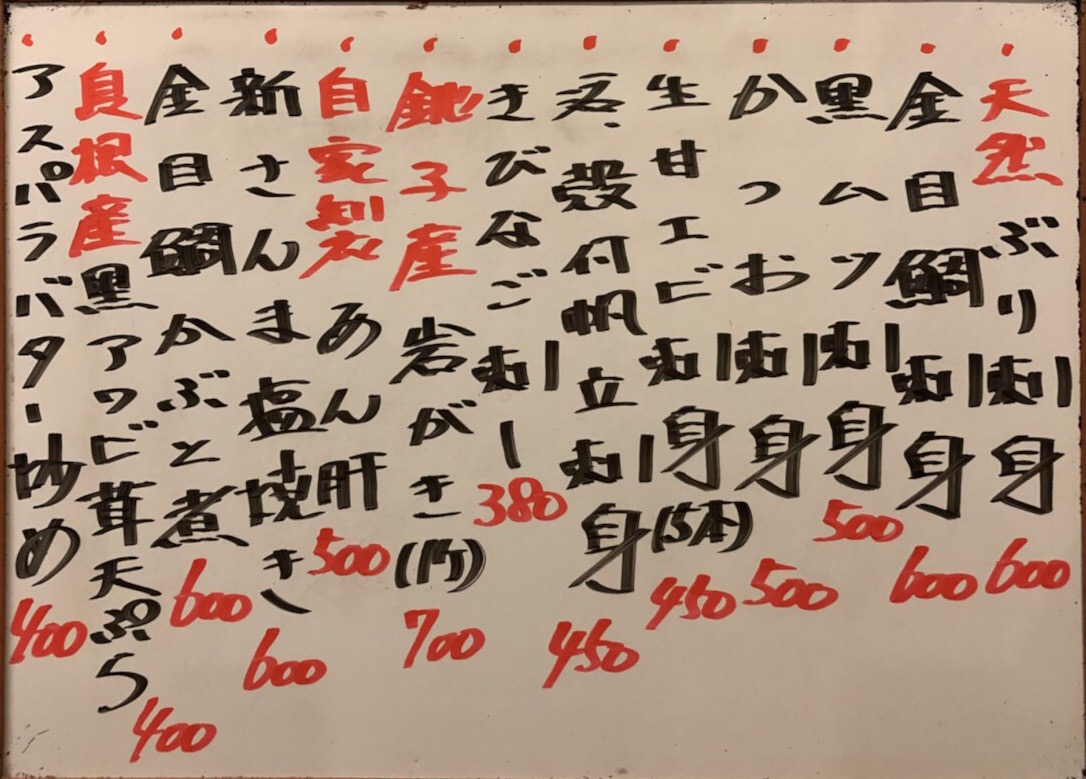 天然ぶり刺身 600
金目鯛刺身 600
黒ムツ刺身 500
かつお刺身 500
生甘エビ刺身(5本) 450
活殻付帆立刺身 450
きびなご刺し 380
銚子産岩がき(1ケ) 700
自家製あん肝 500
新さんま塩焼き 600
金目鯛かぶと煮 600
良根産黒アワビ茸天ぷら 400
アスパラバター炒め 400